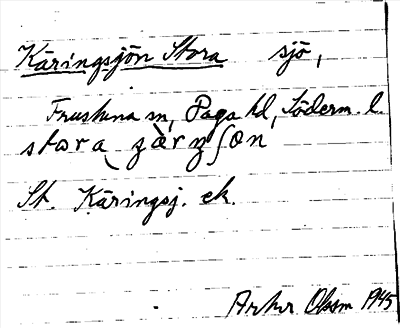 Käringsjön Stora sjö,
Frustuna sn, Daga hd, Söderm. l.
St. Käringsj. ek.
Arthur Olsson 1945